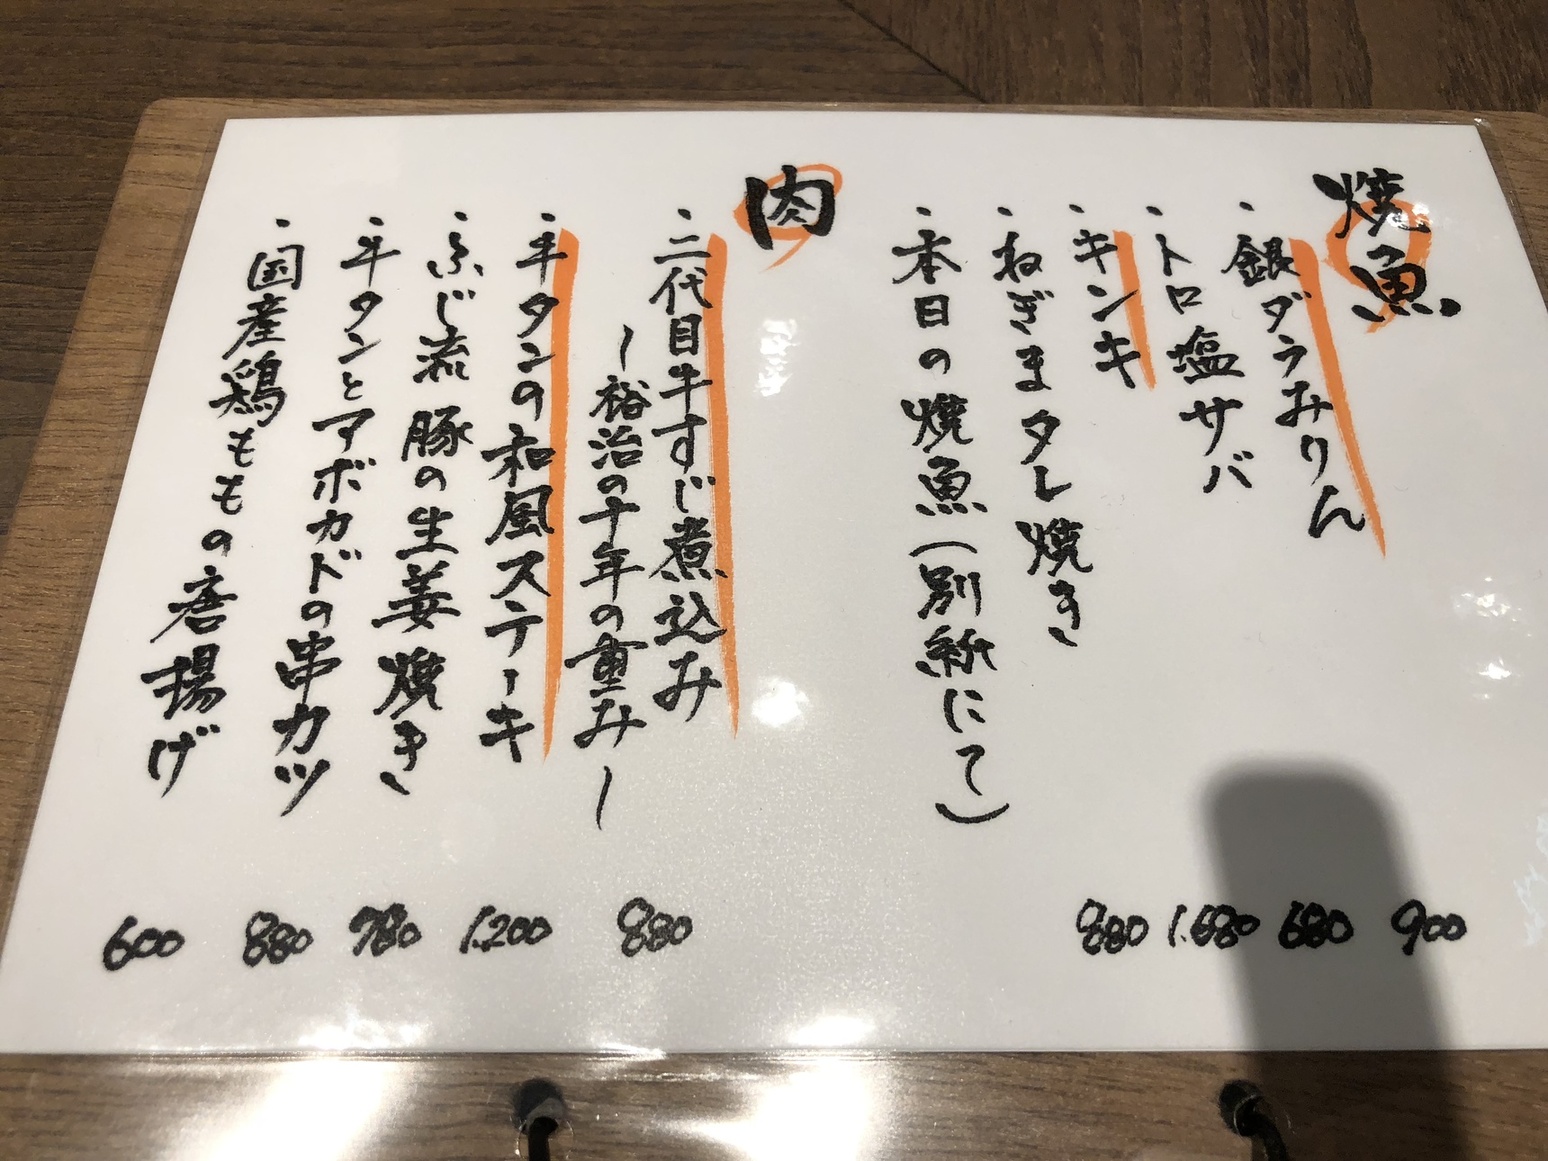 焼魚
・銀ダラみりん 900
・トロ塩サバ 680
・キンキ 1.680
・ねぎまタレ焼き 880
・本日の焼魚(別紙にて)
肉
・二代目牛すじ煮込み
～裕治の十年の重み～ 880
・牛タンの和風ステーキ 1.200
・ふじ流 豚の生姜焼き 780
・牛タンとアボカドの串カツ 880
・国産鶏ももの唐揚げ 600